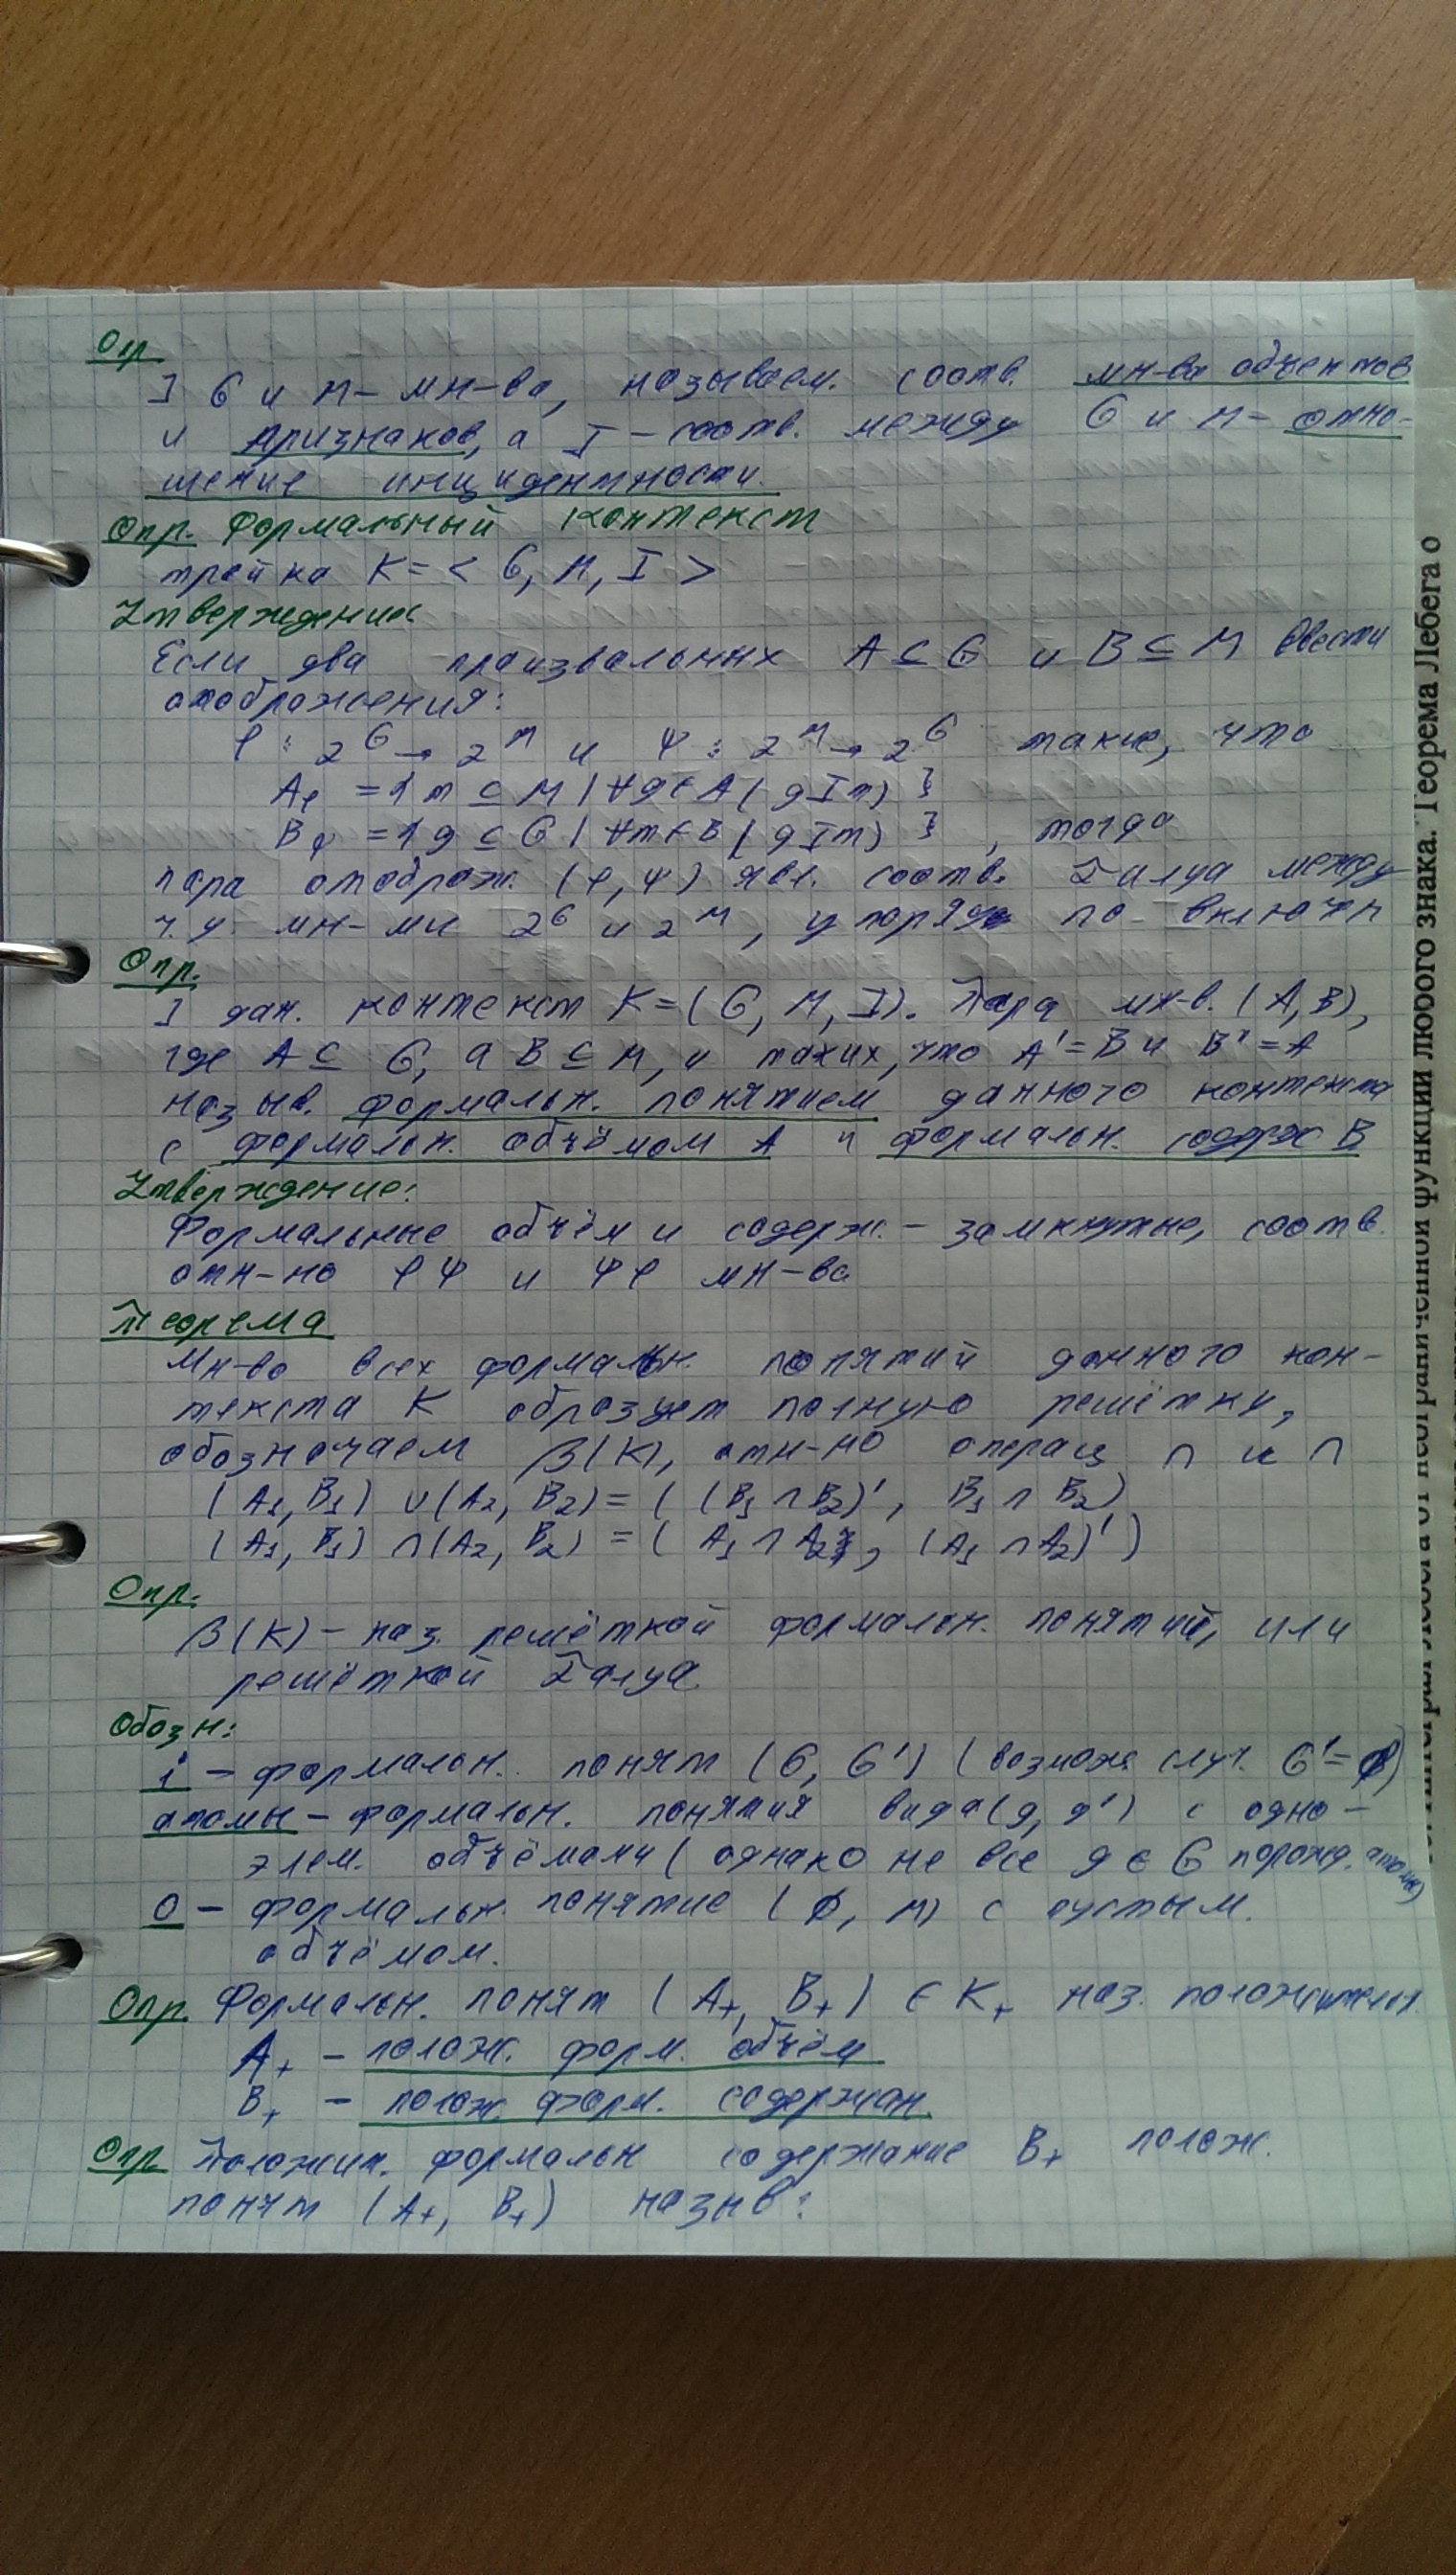 Опр
] G и M – мн-ва, называем. соотв. мн-ва объектов
и признаков, а I – соотв. между G и M – отно-
шение инцидентности.
Опр. Формальный контекст
тройка K = < G, M, I >
Утверждение
Если два произвальных A ⊆ G и B ⊆ M ввести
отображения:
φ : 2^G → 2^M и ψ : 2^M → 2^G такие, что
Aφ = { m ⊆ M | ∀g ∈ A ( g I m ) }
Bψ = { g ⊆ G | ∀m ∈ B ( g I m ) } , тогда
пара отображ. (φ, ψ) явл. соотв. Галуа между
ч.у. мн-ми 2^G и 2^M, упоряд по включен
Опр.
] дан. контекст K = (G, M, I). Пара мн-в. (A, B),
где A ⊆ G, а B ⊆ M, и таких, что A' = B и B' = A
назыв. формальн. понятием данного контекста
с формальн. объёмом A и формальн. содерж B
Утверждение:
Формальные объём и содерж. – замкнутые, соотв.
отн-но φψ и ψφ мн-ва
Теорема
Мн-во всех формальн. понятий данного кон-
текста K образует полную решётку,
обозначаем β(K), отн-но операц ∩ и ∩
(A₁, B₁) ∪ (A₂, B₂) = ( (B₁ ∩ B₂)', B₁ ∩ B₂ )
(A₁, B₁) ∩ (A₂, B₂) = ( A₁ ∩ A₂, (A₁ ∩ A₂)' )
Опр.
β(K) – наз. решёткой формальн. понятий, или
решёткой Галуа.
Обозн:
i – формальн. понят (G, G') (возможн случ. G' = ∅)
атомы – формальн. понятия вида (g, g') с одно-
элем. объёмами (однако не все g ∈ G порожд. атомы)
0 – формальн. понятие (∅, M) с пустым.
объёмом.
Опр. Формальн. понят (A₊, B₊) ∈ K₊ наз. положительн.
A₊ – полож. форм. объём
B₊ – полож. форм. содержан.
Опр Положит. формальн содержание B₊ полож.
понят (A₊, B₊) назыв:
функции любого знака. Теорема Лебега о